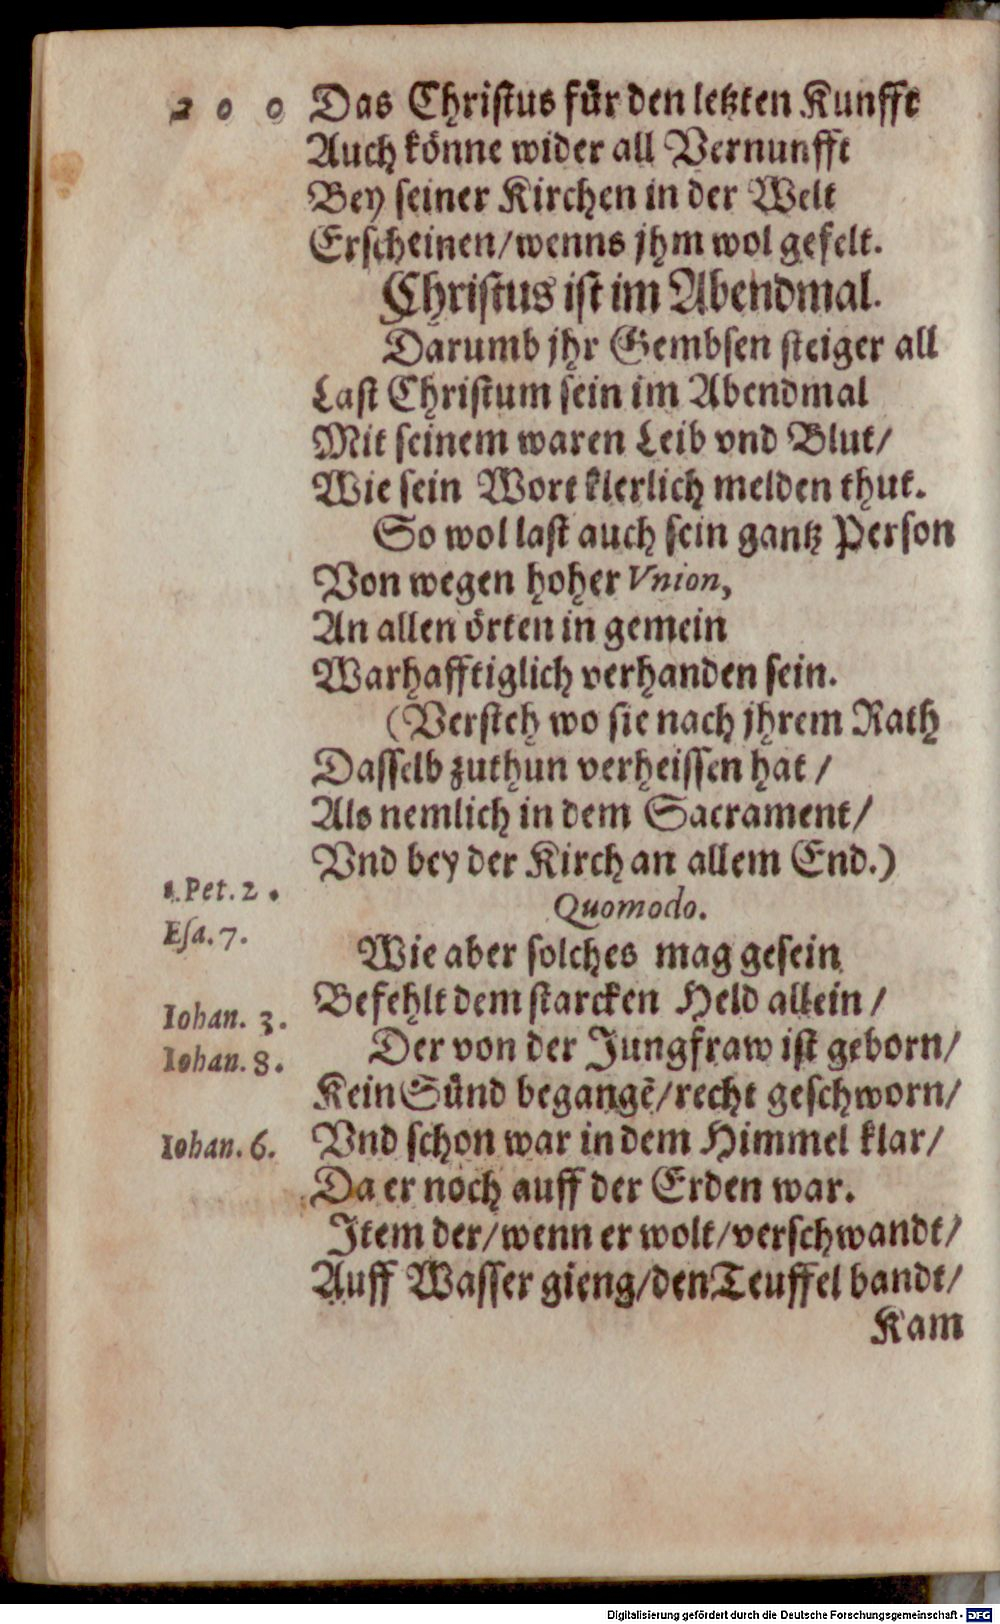 200 Das Christus für den letzten Kunfft
Auch könne wider all Vernunfft
Bey seiner Kirchen in der Welt
Erscheinen/wenns jhm wol gefelt.
Christus ist im Abendmal.
Darumb jhr Gembsen steiger all
Last Christum sein im Abendmal
Mit seinem waren Leib vnd Blut/
Wie sein Wort klerlich melden thut.
So wol last auch sein gantz Person
Von wegen hoher Vnion,
An allen örten in gemein
Warhafftiglich verhanden sein.
(Versteh wo sie nach jhrem Rath
Dasselb zuthun verheissen hat/
Als nemlich in dem Sacrament/
Vnd bey der Kirch an allem End.)
1.Pet.2.
Quomodo.
Esa.7.
Wie aber solches mag gesein
Befehlt dem starcken Held allein/
Iohan. 3.
Der von der Jungfraw ist geborn/
Iohan. 8.
Kein Sünd begangẽ/recht geschworn/
Iohan. 6.
Vnd schon war in dem Himmel klar/
Da er noch auff der Erden war.
Item der/wenn er wolt/verschwandt/
Auff Wasser gieng/den Teuffel bandt/
Kam
Digitalisierung gefördert durch die Deutsche Forschungsgemeinschaft - DFG